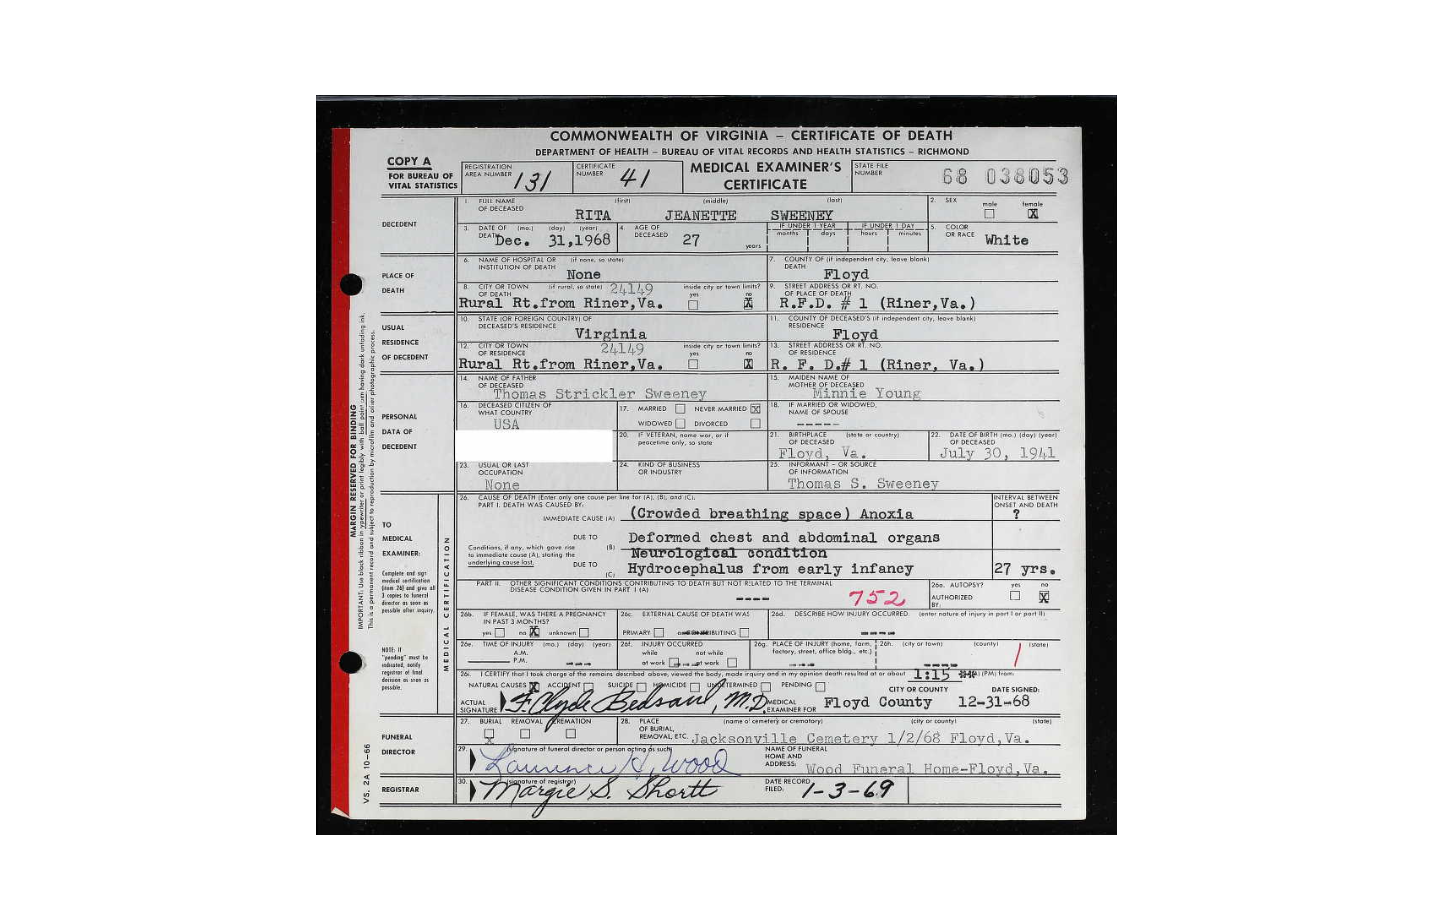 COMMONWEALTH OF VIRGINIA – CERTIFICATE OF DEATH
DEPARTMENT OF HEALTH – BUREAU OF VITAL RECORDS AND HEALTH STATISTICS – RICHMOND
COPY A
FOR BUREAU OF
VITAL STATISTICS
REGISTRATION
AREA NUMBER 131
CERTIFICATE
NUMBER 41
MEDICAL EXAMINER'S
CERTIFICATE
STATE FILE
NUMBER
68 038053
DECEDENT
1. FULL NAME OF DECEASED (first) (middle) (last)
RITA JEANETTE SWEENEY
2. SEX male female X
3. DATE OF DEATH (mo.) (day) (year)
Dec. 31,1968
4. AGE OF DECEASED
27 years
IF UNDER 1 YEAR months days
IF UNDER 1 DAY hours minutes
5. COLOR OR RACE White
PLACE OF
DEATH
6. NAME OF HOSPITAL OR INSTITUTION OF DEATH (if none, so state)
None
7. COUNTY OF DEATH (if independent city, leave blank)
Floyd
8. CITY OR TOWN OF DEATH (if rural, so state) 24149 inside city or town limits? yes no X
Rural Rt.from Riner,Va.
9. STREET ADDRESS OR RT. NO. OF PLACE OF DEATH
R.F.D. # 1 (Riner,Va.)
USUAL
RESIDENCE
OF DECEDENT
10. STATE (OR FOREIGN COUNTRY) OF DECEASED'S RESIDENCE
Virginia
11. COUNTY OF DECEASED'S RESIDENCE (if independent city, leave blank)
Floyd
12. CITY OR TOWN OF RESIDENCE 24149 inside city or town limits? yes no X
Rural Rt.from Riner,Va.
13. STREET ADDRESS OR RT. NO. OF RESIDENCE
R. F. D.# 1 (Riner, Va.)
PERSONAL
DATA OF
DECEDENT
14. NAME OF FATHER OF DECEASED
Thomas Strickler Sweeney
15. MAIDEN NAME OF MOTHER OF DECEASED
Minnie Young
16. DECEASED CITIZEN OF WHAT COUNTRY
USA
17. MARRIED NEVER MARRIED X
WIDOWED DIVORCED
18. IF MARRIED OR WIDOWED, NAME OF SPOUSE
-----
20. IF VETERAN, name war, or if peacetime only, so state
21. BIRTHPLACE OF DECEASED (state or country)
Floyd, Va.
22. DATE OF BIRTH (mo.) (day) (year) OF DECEASED
July 30, 1941
23. USUAL OR LAST OCCUPATION
None
24. KIND OF BUSINESS OR INDUSTRY
25. INFORMANT – OR SOURCE OF INFORMATION
Thomas S. Sweeney
TO
MEDICAL
EXAMINER:
Complete and sign
medical certification
(item 26) and give all
3 copies to funeral
director as soon as
possible after inquiry.
NOTE: If
"pending" must be
indicated, notify
registrar of final
decision as soon as
possible.
MEDICAL CERTIFICATION
26. CAUSE OF DEATH (Enter only one cause per line for (A), (B), and (C).
PART I. DEATH WAS CAUSED BY:
INTERVAL BETWEEN ONSET AND DEATH
IMMEDIATE CAUSE (A) (Crowded breathing space) Anoxia ?
DUE TO Deformed chest and abdominal organs
Conditions, if any, which gave rise to immediate cause (A), stating the underlying cause last.
(B) Neurological condition
DUE TO (C) Hydrocephalus from early infancy 27 yrs.
PART II. OTHER SIGNIFICANT CONDITIONS CONTRIBUTING TO DEATH BUT NOT RELATED TO THE TERMINAL DISEASE CONDITION GIVEN IN PART I (A)
----
752
26a. AUTOPSY? yes no X
AUTHORIZED BY:
26b. IF FEMALE, WAS THERE A PREGNANCY IN PAST 3 MONTHS?
yes no X unknown
26c. EXTERNAL CAUSE OF DEATH WAS
PRIMARY CONTRIBUTING
26d. DESCRIBE HOW INJURY OCCURRED (enter nature of injury in part I or part II)
----
26e. TIME OF INJURY (mo.) (day) (year)
A.M.
P.M. ---
26f. INJURY OCCURRED
while at work not while at work
26g. PLACE OF INJURY (home, farm, factory, street, office bldg., etc.)
---
26h. (city or town) (county) (state)
----
26i. I CERTIFY that I took charge of the remains described above, viewed the body, made inquiry and in my opinion death resulted at or about 1:15 (PM) from:
NATURAL CAUSES X ACCIDENT SUICIDE HOMICIDE UNDETERMINED PENDING
CITY OR COUNTY DATE SIGNED:
ACTUAL SIGNATURE F. Clyde Bedsaul, M.D. MEDICAL EXAMINER FOR Floyd County 12-31-68
FUNERAL
DIRECTOR
27. BURIAL REMOVAL CREMATION
X
28. PLACE OF BURIAL, REMOVAL, ETC. (name of cemetery or crematory) (city or county) (state)
Jacksonville Cemetery 1/2/68 Floyd,Va.
29. (signature of funeral director or person acting as such)
NAME OF FUNERAL HOME AND ADDRESS: Wood Funeral Home-Floyd,Va.
REGISTRAR
30. (signature of registrar)
Margie S. Shortt
DATE RECORD FILED: 1-3-69
MARGIN RESERVED FOR BINDING
IMPORTANT: Use black ribbon in typewriter or print legibly with ball point pen having dark unfading ink.
This is a permanent record and subject to reproduction by microfilm and other photographic process.
VS. 2A 10-66